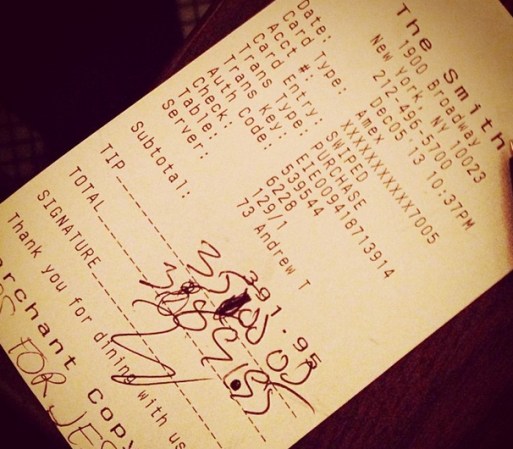 The Smith
1900 Broadway
New York, NY 10023
212-496-5700
Date: Dec05'13 10:37PM
Card Type: Amex
Acct #: XXXXXXXXXXX7005
Card Entry: SWIPED
Trans Type: PURCHASE
Trans Key: EIE009418713914
Auth Code: 539544
Check: 6226
Table: 129/1
Server: 73 Andrew T
Subtotal: 391.95
TIP
TOTAL
SIGNATURE
Thank you for dining with us
erchant Copy
FOR JES